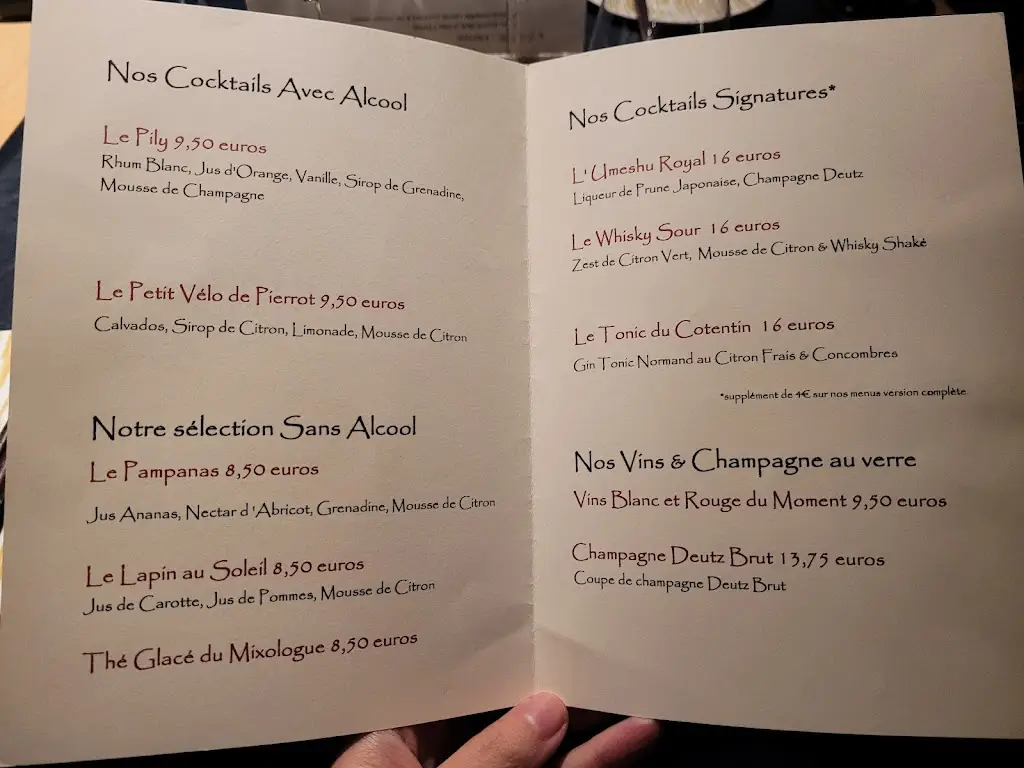 Nos Cocktails Avec Alcool
Le Pily 9,50 euros
Rhum Blanc, Jus d'Orange, Vanille, Sirop de Grenadine,
Mousse de Champagne
Le Petit Vélo de Pierrot 9,50 euros
Calvados, Sirop de Citron, Limonade, Mousse de Citron
Notre sélection Sans Alcool
Le Pampanas 8,50 euros
Jus Ananas, Nectar d'Abricot, Grenadine, Mousse de Citron
Le Lapin au Soleil 8,50 euros
Jus de Carotte, Jus de Pommes, Mousse de Citron
Thé Glacé du Mixologue 8,50 euros
Nos Cocktails Signatures*
L'Umeshu Royal 16 euros
Liqueur de Prune Japonaise, Champagne Deutz
Le Whisky Sour 16 euros
Zest de Citron Vert, Mousse de Citron & Whisky Shaké
Le Tonic du Cotentin 16 euros
Gin Tonic Normand au Citron Frais & Concombres
*supplément de 4€ sur nos menus version complète
Nos Vins & Champagne au verre
Vins Blanc et Rouge du Moment 9,50 euros
Champagne Deutz Brut 13,75 euros
Coupe de champagne Deutz Brut